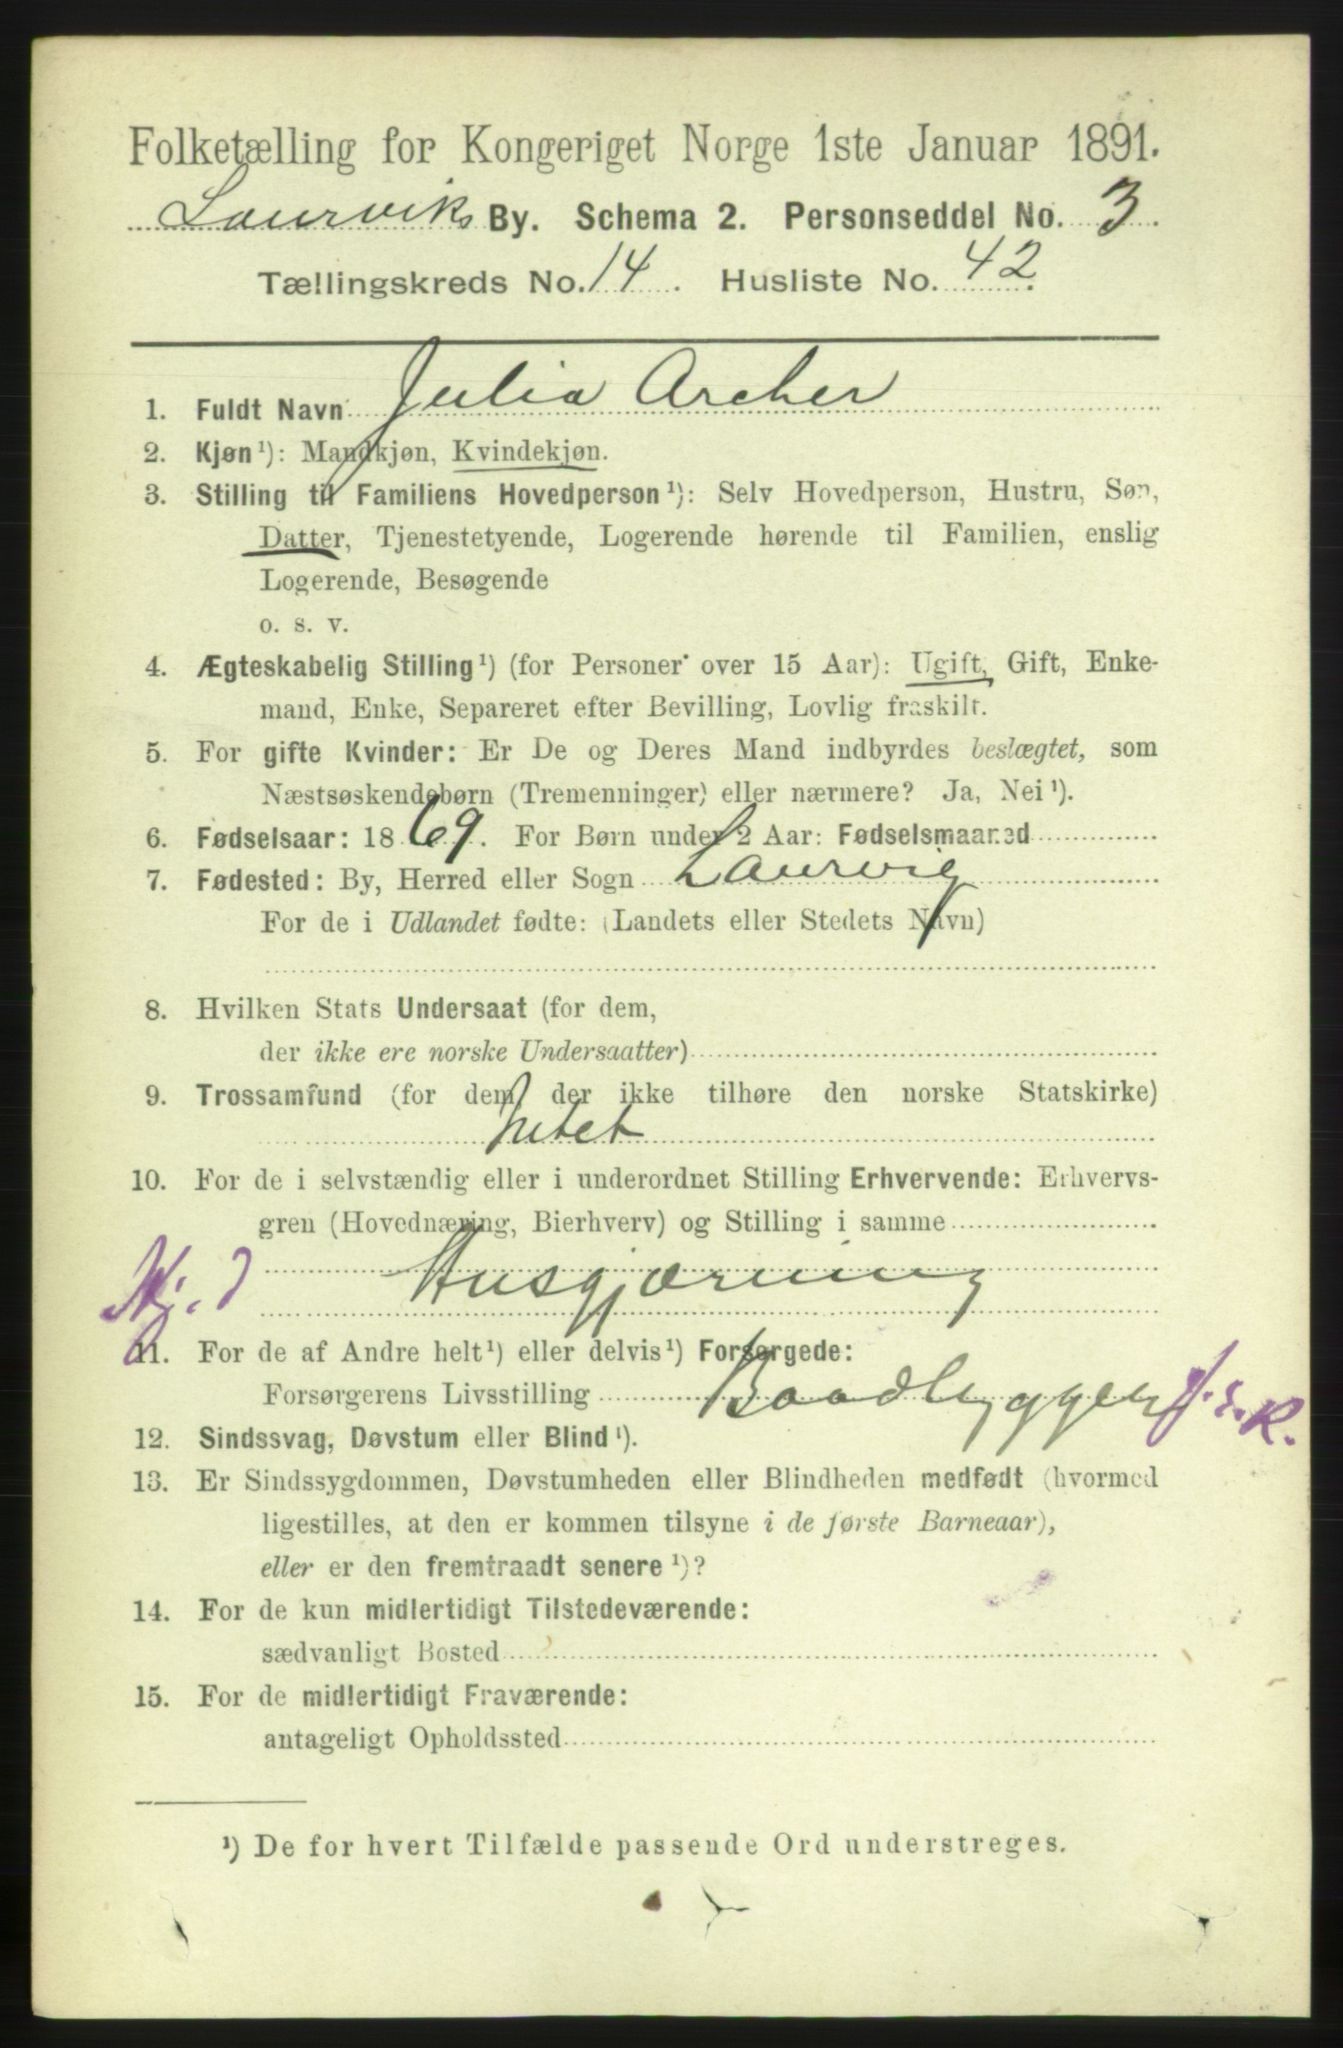 Folketælling for Kongeriget Norge 1ste Januar 1891.
Laurviks By. Schema 2. Personseddel No. 3.
Tællingskreds No. 14. Husliste No. 42.
1. Fuldt Navn Julia Archer
2. Kjøn ¹): Mandkjøn, Kvindekjøn.
3. Stilling til Familiens Hovedperson ¹): Selv Hovedperson, Hustru, Søn,
Datter, Tjenestetyende, Logerende hørende til Familien, enslig
Logerende, Besøgende
o. s. v.
4. Ægteskabelig Stilling ¹) (for Personer over 15 Aar): Ugift, Gift, Enke-
mand, Enke, Separeret efter Bevilling, Lovlig fraskilt.
5. For gifte Kvinder: Er De og Deres Mand indbyrdes beslægtet, som
Næstsøskendebørn (Tremenninger) eller nærmere? Ja, Nei ¹).
6. Fødselsaar: 1869. For Børn under 2 Aar: Fødselsmaaned
7. Fødested: By, Herred eller Sogn Laurvig
For de i Udlandet fødte: (Landets eller Stedets Navn)
8. Hvilken Stats Undersaat (for dem,
der ikke ere norske Undersaatter)
9. Trossamfund (for dem, der ikke tilhøre den norske Statskirke)
Intet
10. For de i selvstændig eller i underordnet Stilling Erhvervende: Erhvervs-
gren (Hovednæring, Bierhverv) og Stilling i samme
Husgjærning
11. For de af Andre helt ¹) eller delvis ¹) Forsørgede:
Forsørgerens Livsstilling Baadbygger f.s.R.
12. Sindssvag, Døvstum eller Blind ¹).
13. Er Sindssygdommen, Døvstumheden eller Blindheden medfødt (hvormed
ligestilles, at den er kommen tilsyne i de første Barneaar),
eller er den fremtraadt senere ¹)?
14. For de kun midlertidigt Tilstedeværende:
sædvanligt Bosted
15. For de midlertidigt Fraværende:
antageligt Opholdssted
¹) De for hvert Tilfælde passende Ord understreges.